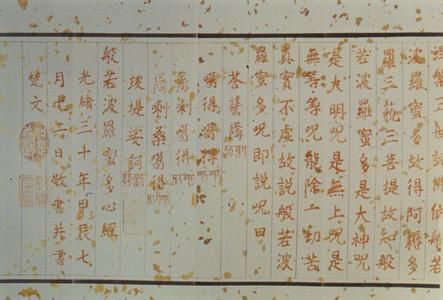 諸佛依般若
波羅蜜多故得阿耨多
羅三藐三菩提故知般
若波羅蜜多是大神咒
是大明咒是無上咒是
無等等咒能除一切苦
真實不虛故說般若波
羅蜜多咒即說咒曰
噶得噶得
噶得
桑噶得
提娑訶
般若波羅蜜多心經
光緒三十年甲辰七
月廿六日敬書并書
梵文